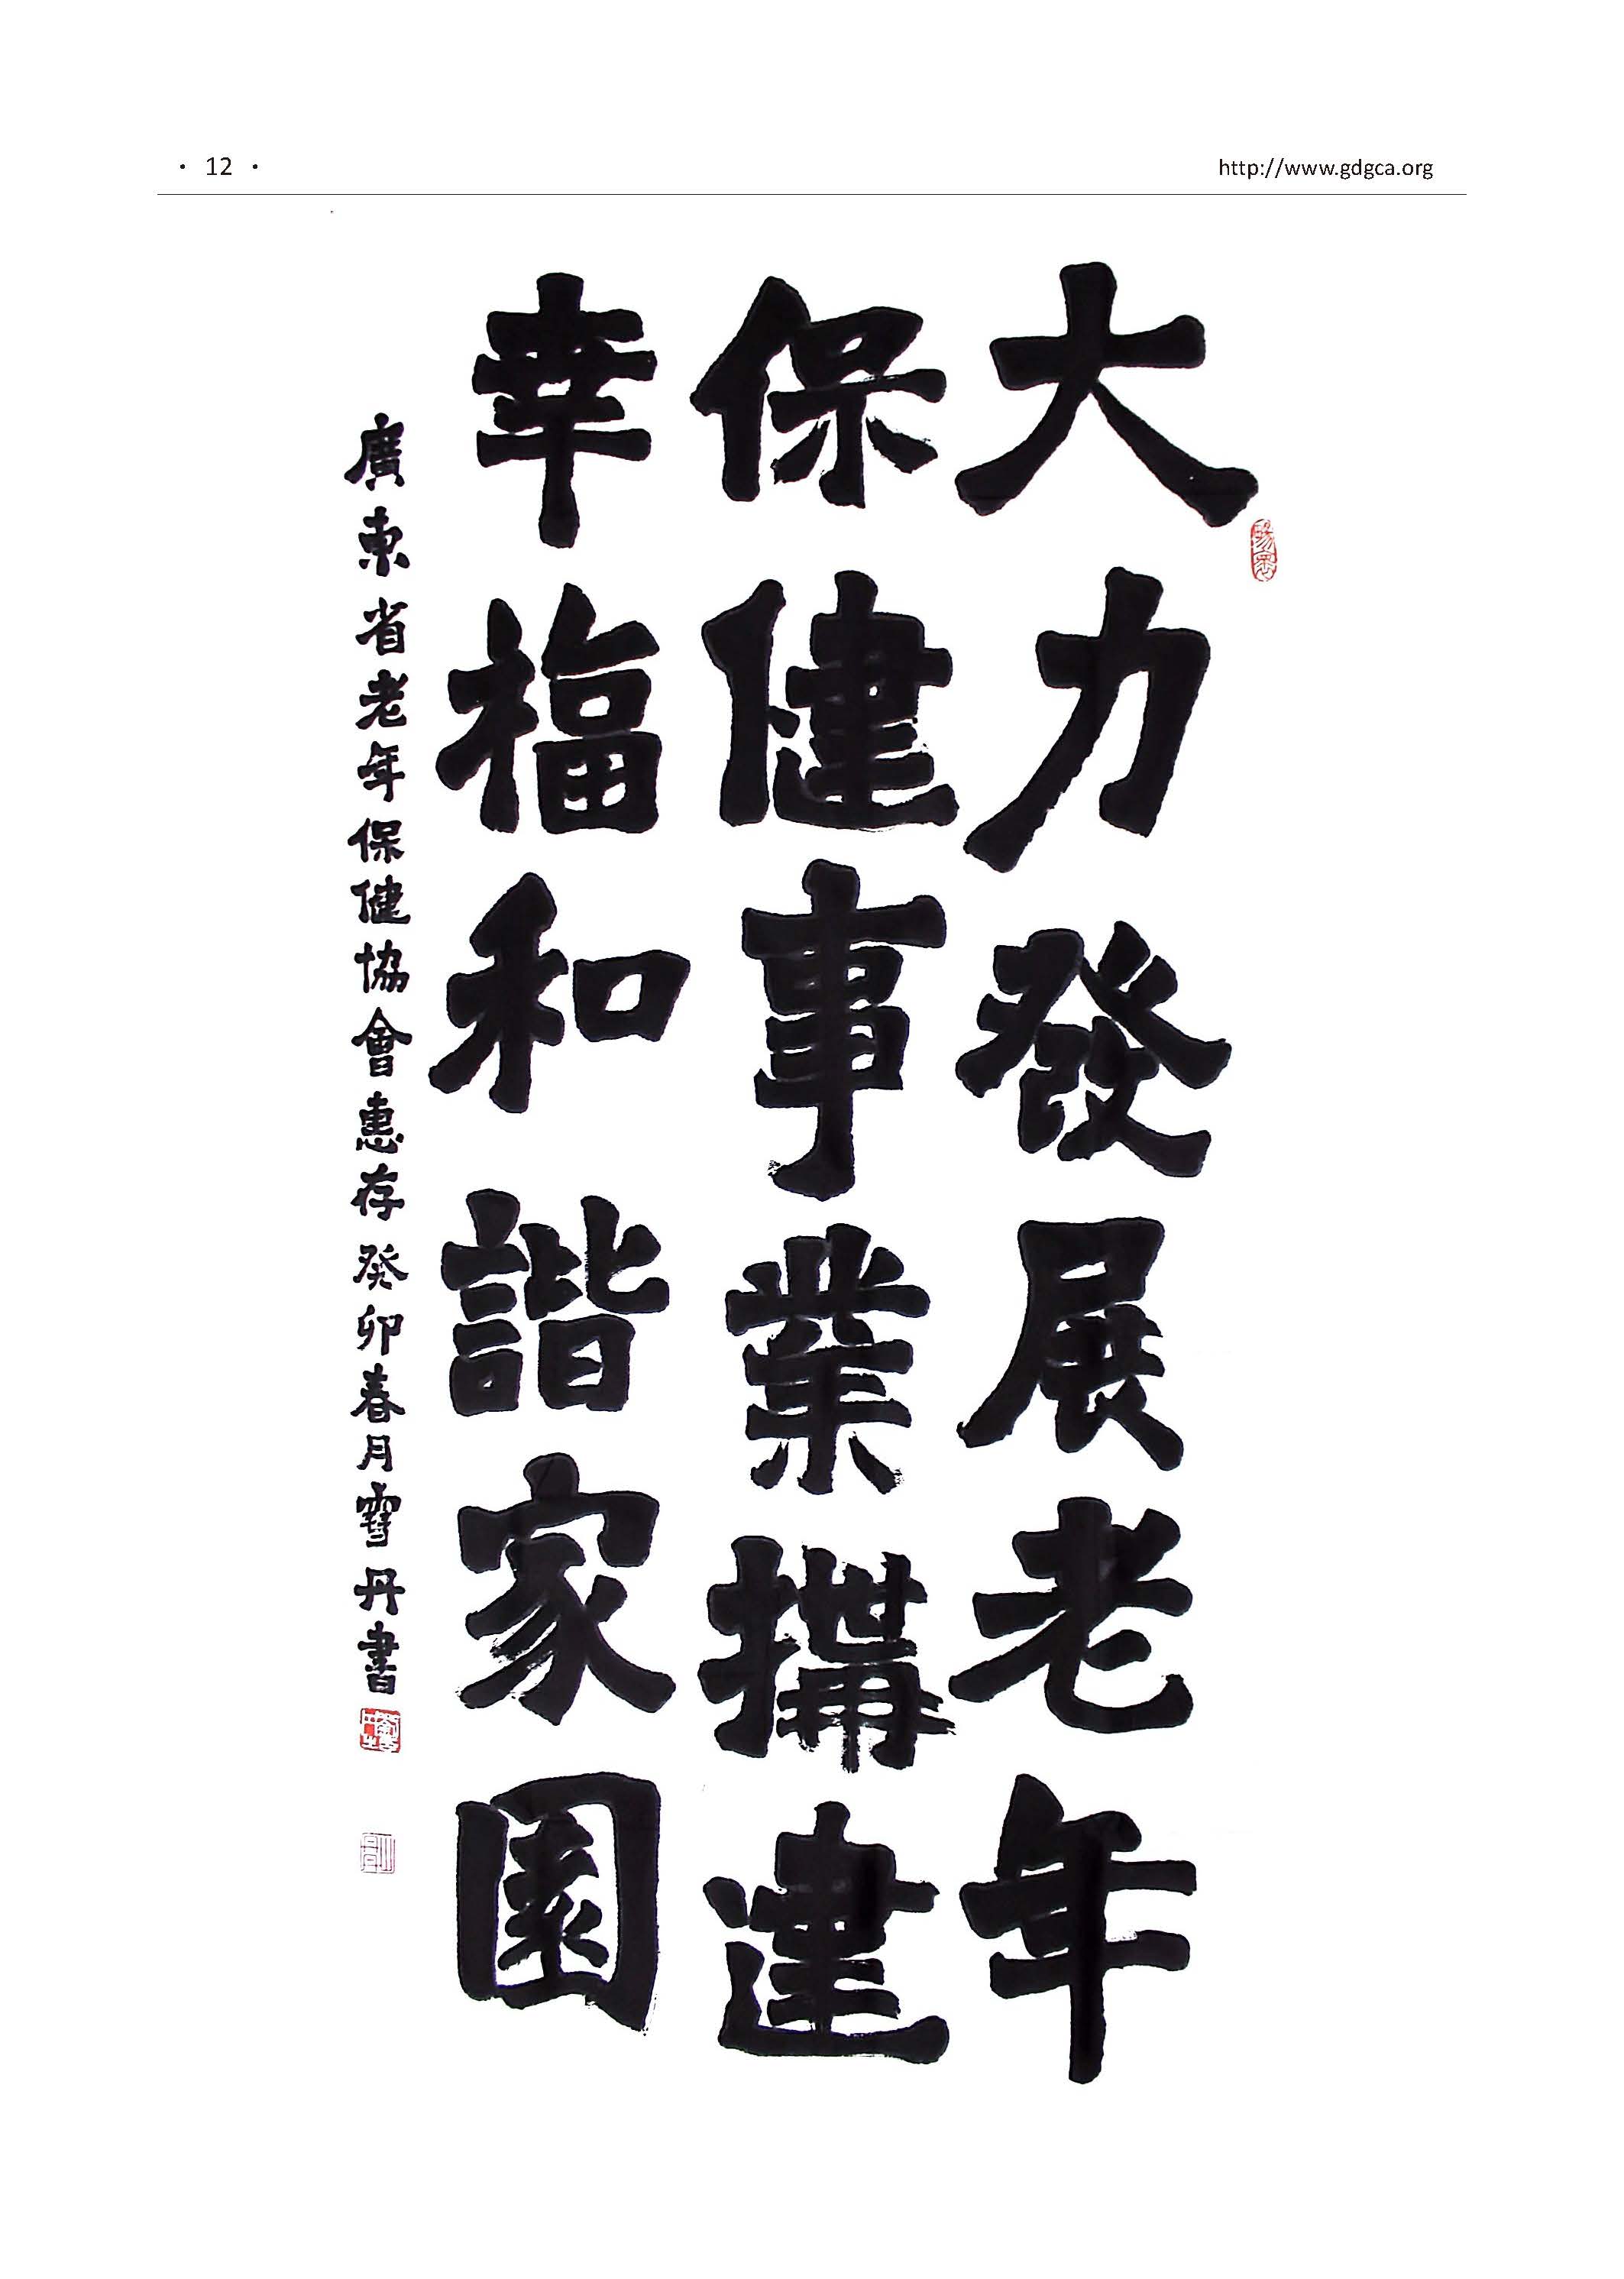 · 12 ·
http://www.gdgca.org
大力發展老年
保健事業搆建
幸福和諧家園
廣東省老年保健協會惠存 癸卯春月雪丹書